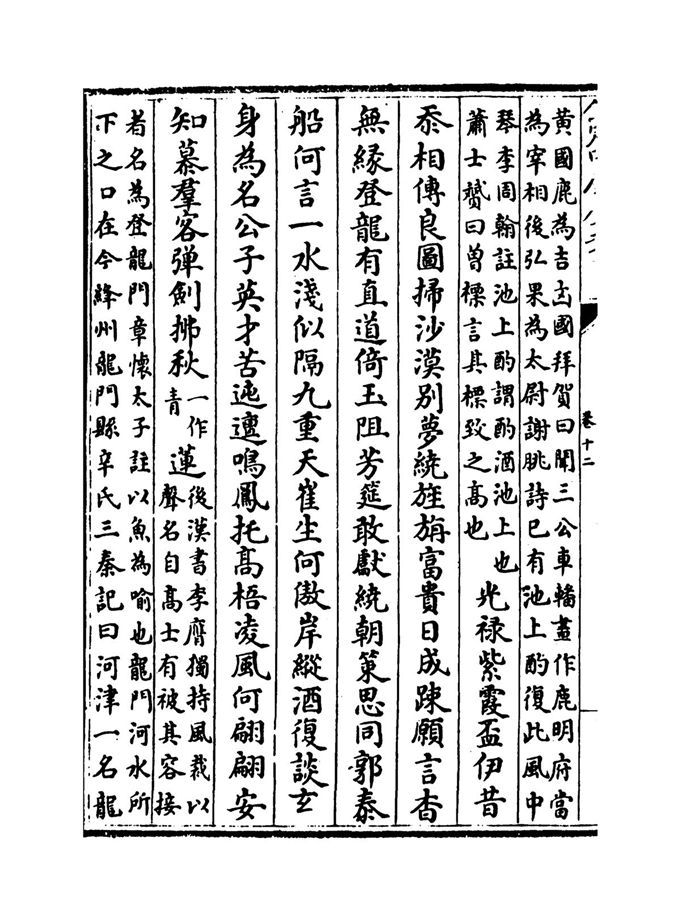 黄國鹿為吉出國拜賀曰聞三公車轓畫作鹿明府當
為宰相後弘果為太尉謝朓詩已有池上酌復此風中
琴李周翰註池上酌謂酌酒池上也
蕭士贇曰曽標言其標致之髙也
光禄紫霞盃伊昔
忝相傳良圖掃沙漠别夢繞旌旃富貴日成疎願言杳
無縁登龍有直道倚玉阻芳筵敢獻繞朝䇿思同郭泰
船何言一水淺似隔九重天崔生何傲岸縱酒復談𤣥
身為名公子英才苦迍邅鳴鳳托髙梧凌風何翩翩安
知慕羣客弹劍拂秋
一作
青
蓮
後漢書李膺獨持風裁以
聲名自髙士有被其容接
者名為登龍門章懷太子註以魚為喻也龍門河水所
下之口在今絳州龍門縣辛氏三秦記曰河津一名龍
卷十二